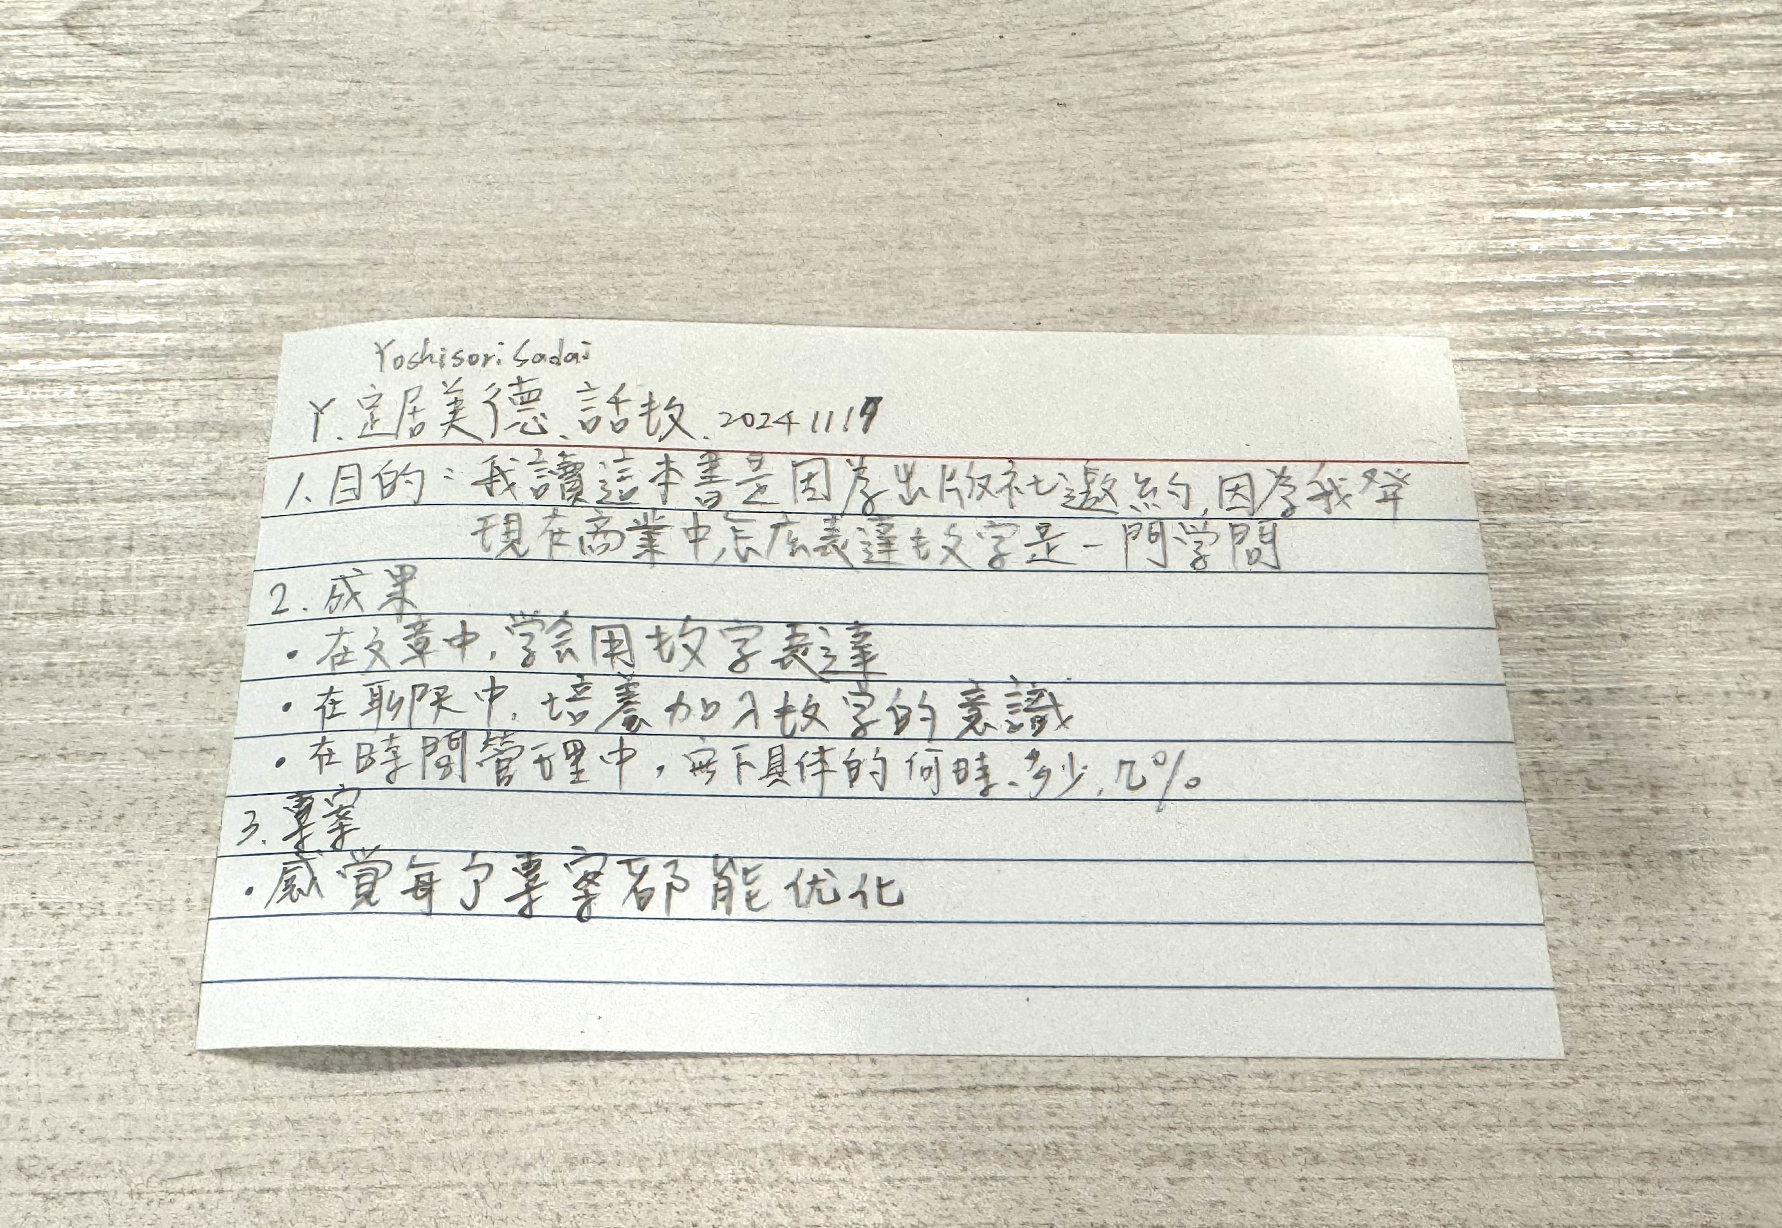 Yoshisori Sadai
Y. 定居美德、話数. 20241119
1. 目的：我讀這本書是因為出版社邀約,因為我發
現在商業中,怎麼表達数字是一門学問
2. 成果
• 在文章中,学会用数字表達
• 在聊天中,培養加入数字的意識
• 在時間管理中,定下具体的何時、多少,几%
3. 專案
• 感覚每个專案都能优化